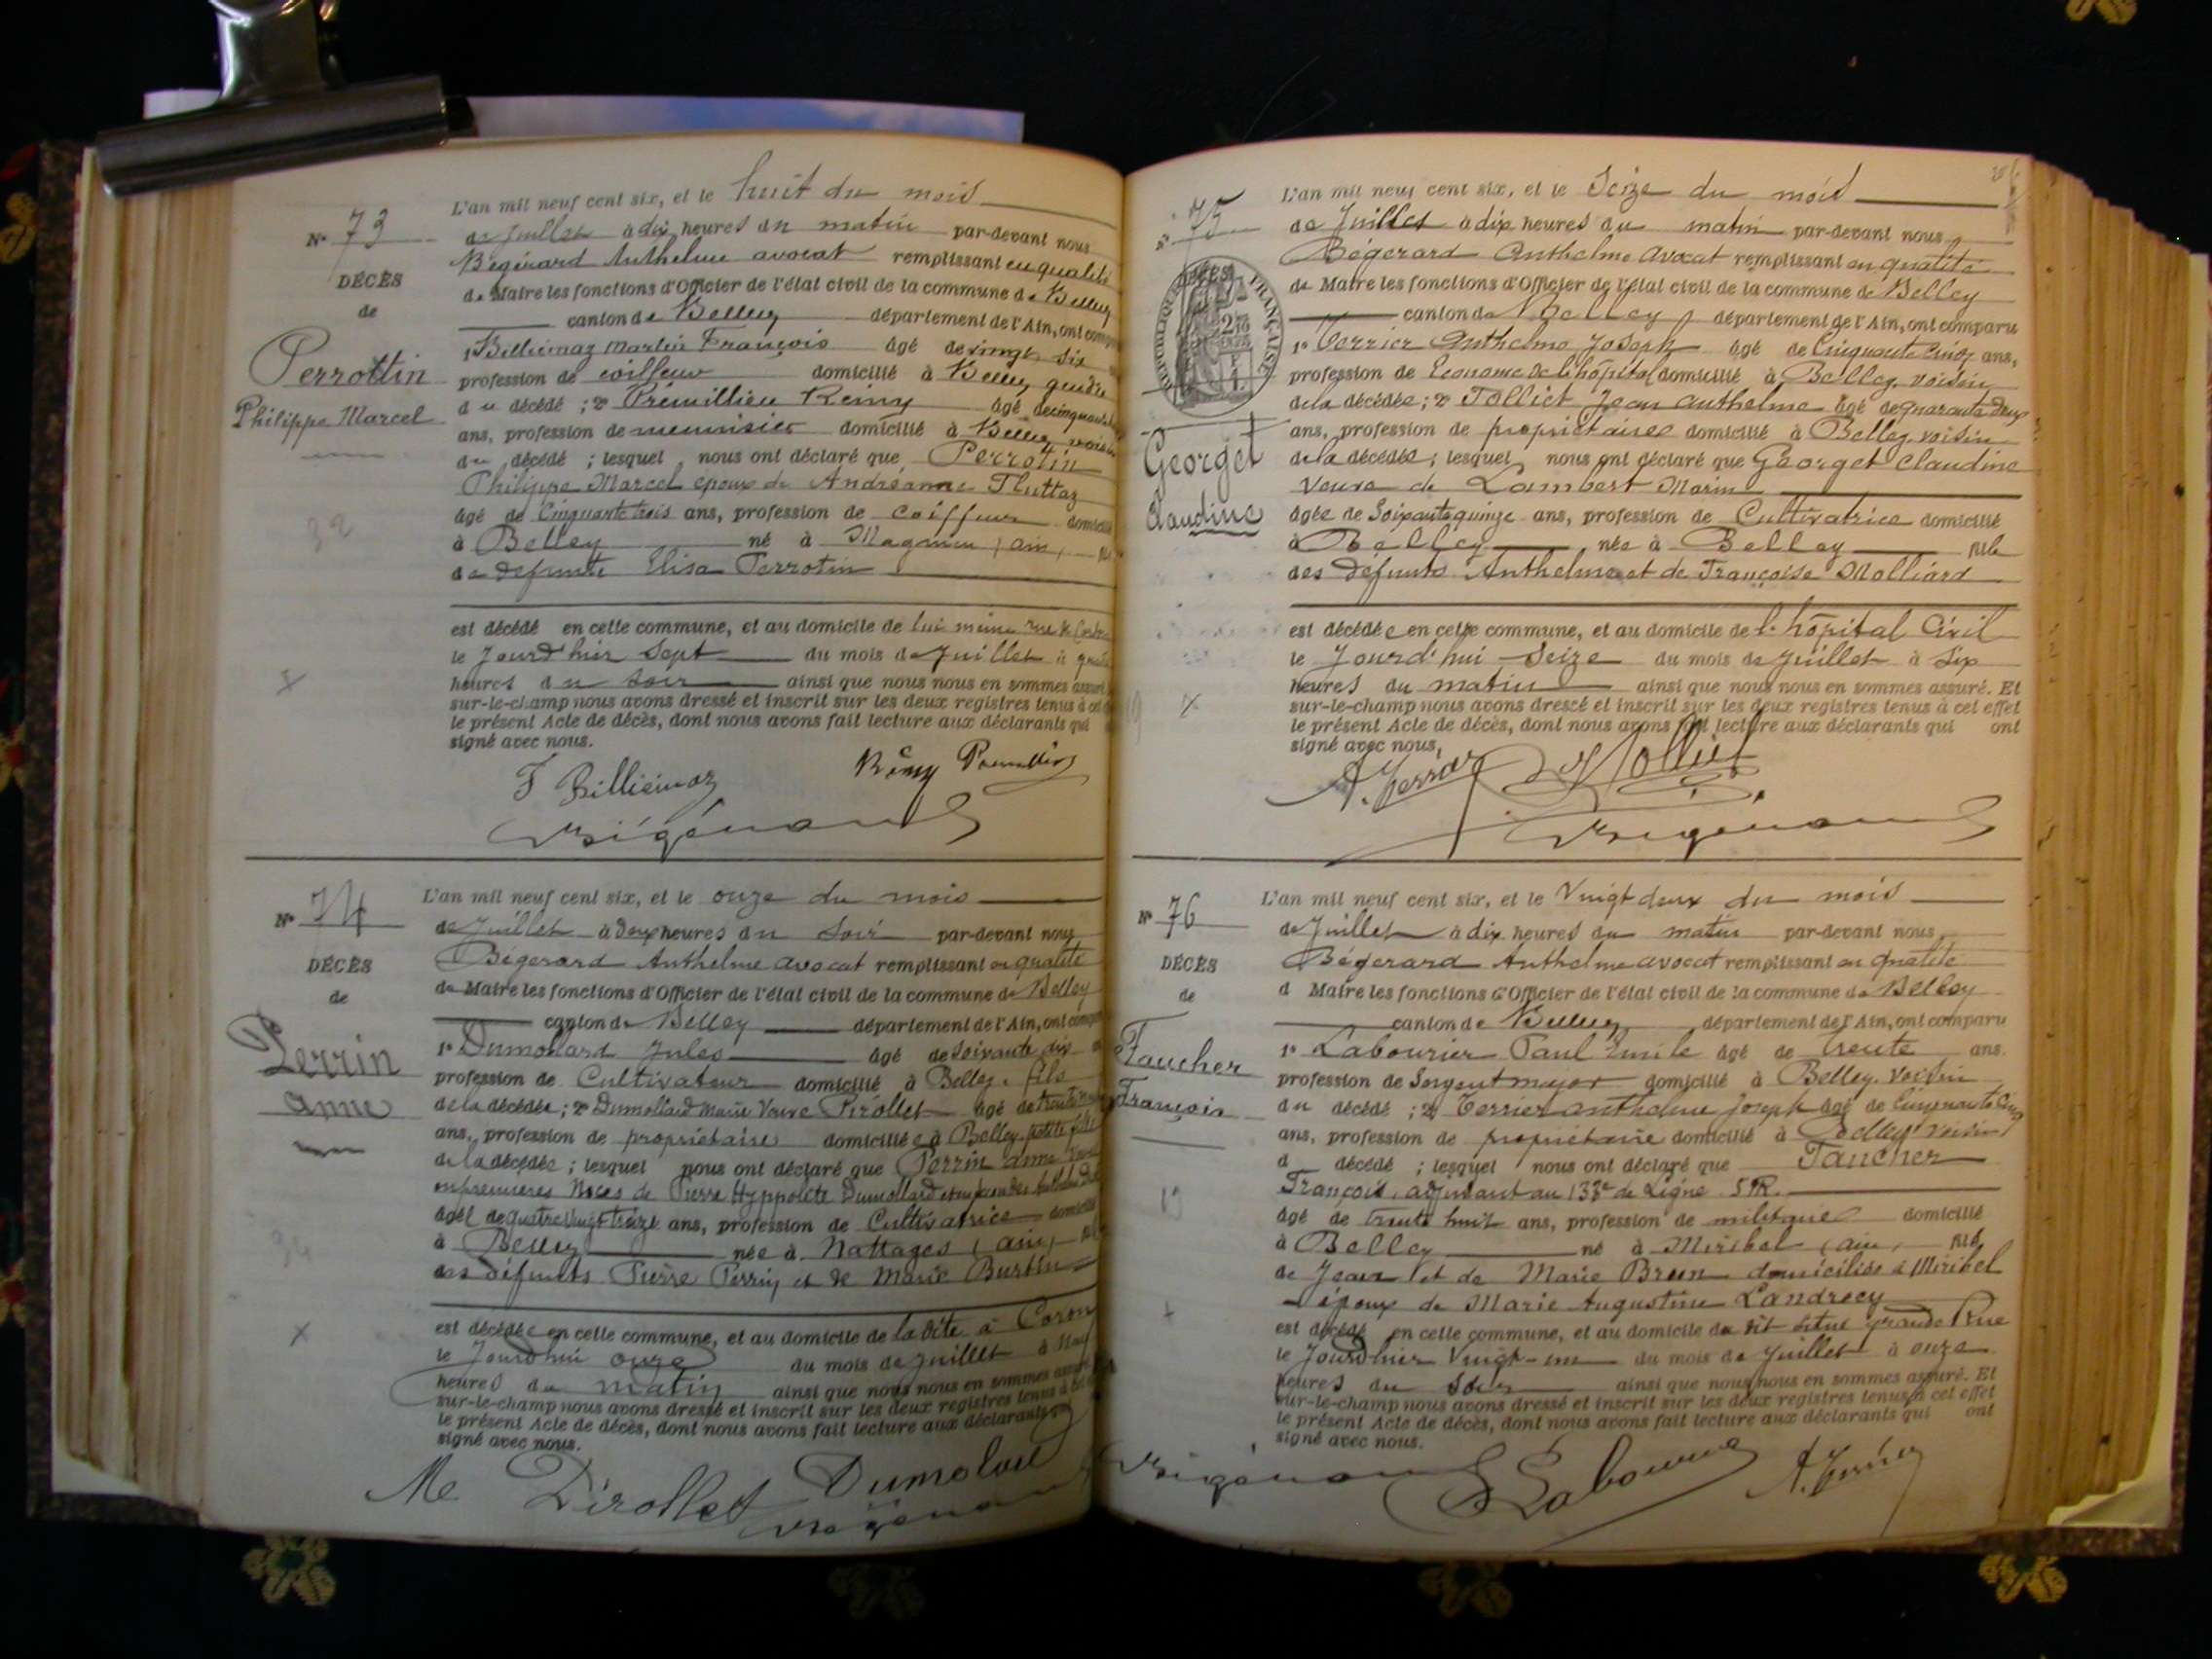 L'an mil neuf cent six, et le huit du mois
N° 73
de Juillet à dix heures du matin par-devant nous
Bégérard Anthelme avocat remplissant en qualité
DÉCÈS
de Maire les fonctions d'Officier de l'état civil de la commune de Belley
de
canton de Belley département de l'Ain, ont
1° Billiémaz Martin François âgé de vingt six
Perrottin
profession de coiffeur domicilié à Belley gendre
Philippe Marcel
du décédé ; 2° Prémillieu Rémy âgé de cinquante
ans, profession de menuisier domicilié à Belley voisin
du décédé ; lesquel nous ont déclaré que Perrotin
Philippe Marcel époux de Andréanne Fluttaz
âgé de Cinquante trois ans, profession de coiffeur domicilié
32
à Belley né à Magnieu (ain)
de défunte Elisa Perrotin
est décédé en cette commune, et au domicile de lui même rue
le Jourd'hier Sept du mois de Juillet à
X
heures du soir ainsi que nous nous en sommes assuré
sur-le-champ nous avons dressé et inscrit sur les deux registres tenus à cet
le présent Acte de décès, dont nous avons fait lecture aux déclarants qui
signé avec nous.
F Billiémaz Rémy Prémillieu
Bégérard
L'an mil neuf cent six, et le onze du mois
N° 74
de Juillet à deux heures du soir par-devant nous
Bégerard Anthelme avocat remplissant en qualité
DÉCÈS
de Maire les fonctions d'Officier de l'état civil de la commune de Belley
de
canton de Belley département de l'Ain, ont
Perrin
1° Dumollard Jules âgé de soixante dix
profession de Cultivateur domicilié à Belley, fils
anne
de la décédée ; 2° Dumollard Marie Veuve Pirollet âgé de
ans, profession de propriétaire domiciliée à Belley petite fille
de la décédée ; lesquel nous ont déclaré que Perrin anne
en premières Noces de Pierre Hyppolite Dumollard
âgée de quatre vingt treize ans, profession de Cultivatrice domicilié
à Belley née à Nattages (ain)
des défunts Pierre Perrin et de Marie Burtin
est décédée en cette commune, et au domicile de la dite à Coron
X
le Jourd'hui onze du mois de juillet à
heures du matin ainsi que nous nous en sommes assuré
sur-le-champ nous avons dressé et inscrit sur les deux registres tenus à cet
le présent Acte de décès, dont nous avons fait lecture aux déclarants
signé avec nous.
Me Pirollet Dumolard
Bégérard
L'an mil neuf cent six, et le Seize du mois
N° 75
de Juillet à dix heures du matin par-devant nous
Bégerard Anthelme Avocat remplissant en qualité
RÉPUBLIQUE FRANÇAISE
de Maire les fonctions d'Officier de l'état civil de la commune de Belley
canton de Belley département de l'Ain, ont comparu
1° Terrier Anthelme Joseph âgé de Cinquante Cinq ans,
profession de Econome de l'hôpital domicilié à Belley, voisin
de la décédée ; 2° Tolliet Jean Anthelme âgé de quarante deux
ans, profession de propriétaire domicilié à Belley voisin
Georget
de la décédée ; lesquel nous ont déclaré que Georget Claudine
Veuve de Lambert Marin
Claudine
âgée de Soixante quinze ans, profession de Cultivatrice domicilié
à Belley née à Belley fille
des défunts Anthelme et de Françoise Molliard
est décédée en cette commune, et au domicile de l'hôpital Civil
le Jourd'hui Seize du mois de juillet à Six
X
heures du matin ainsi que nous nous en sommes assuré. Et
sur-le-champ nous avons dressé et inscrit sur les deux registres tenus à cet effet
le présent Acte de décès, dont nous avons fait lecture aux déclarants qui ont
signé avec nous,
A. Terrier Tolliet
Bégérard
L'an mil neuf cent six, et le Vingt deux du mois
N° 76
de Juillet à dix heures du matin par-devant nous
Bégerard Anthelme avocat remplissant en qualité
DÉCÈS
d Maire les fonctions d'Officier de l'état civil de la commune de Belley
de
canton de Belley département de l'Ain, ont comparu
Faucher
1° Labourier Paul Emile âgé de trente ans.
profession de Sergent major domicilié à Belley. Voisin
François
du décédé ; 2° Terrier anthelme Joseph âgé de Cinquante Cinq
ans, profession de propriétaire domicilié à Belley voisin
d décédé ; lesquel nous ont déclaré que Faucher
François, adjudant au 133e de Ligne
19
âgé de trente huit ans, profession de militaire domicilié
à Belley né à Miribel (ain) fils
de Jean et de Marie Brun domiciliés à Miribel
époux de Marie Augustine Landrecy
est décédé en cette commune, et au domicile du dit situé grande Rue
le Jourd'hier Vingt-un du mois de Juillet à onze
heures du Soir ainsi que nous nous en sommes assuré. Et
sur-le-champ nous avons dressé et inscrit sur les deux registres tenus à cet effet
le présent Acte de décès, dont nous avons fait lecture aux déclarants qui ont
signé avec nous.
Bégérard Labourier A. Terrier